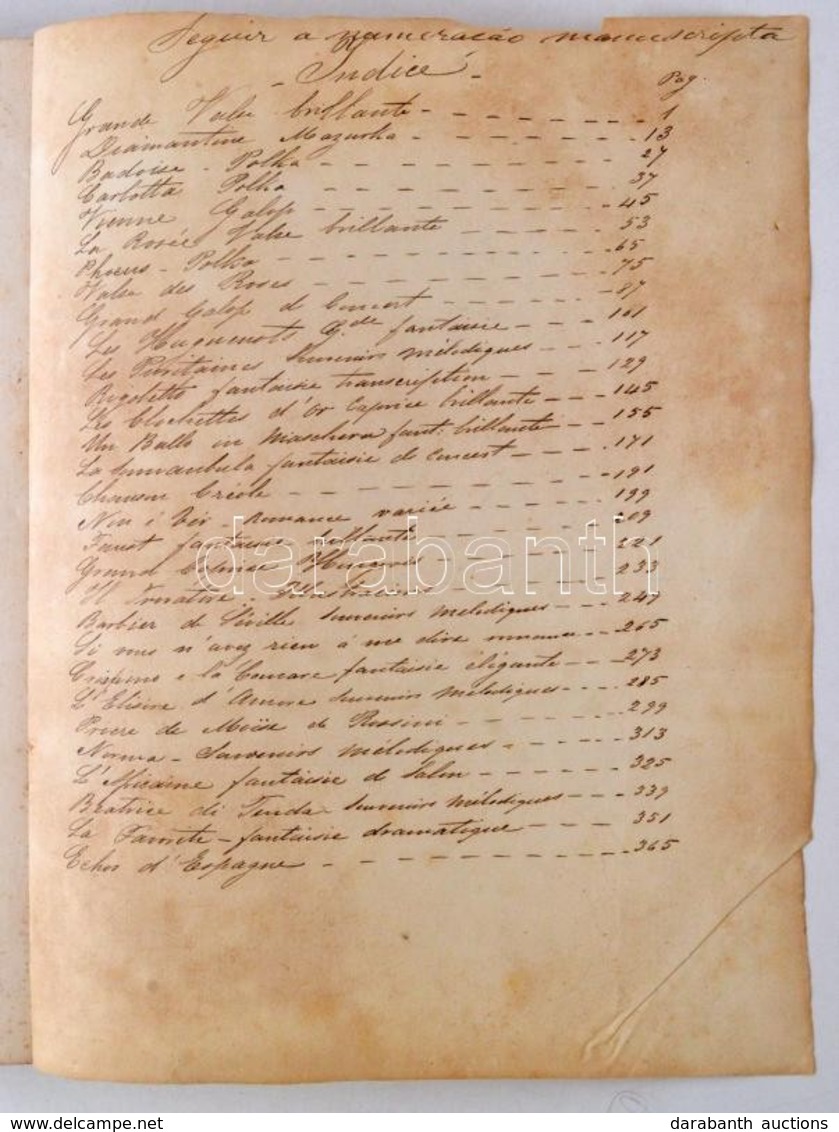 Seguir a numeração manuscripta
- Indice -
Pag.
Grande Valse brillante - - - - - - - - 1
Diamantine Mazurka - - - - - - - - 13
Badoise - Polka - - - - - - - - 27
Carlotta Polka - - - - - - - - 37
Vienne Galop - - - - - - - - 45
La Rosée Valse brillante - - - - - - 53
- Polka - - - - - - - - 65
Valse des Roses - - - - - - - - 75
Grand Galop de Concert - - - - - - 87
Les Huguenots Gde fantaisie - - - 101
Les Puritaines Souvenirs mélodiques - - - 117
Rigoletto fantaisie transcription - - - 129
Les Clochettes d'Or Caprice brillante - - - 145
Un Ballo in Maschera fant: brillante - - - 155
La Sonnanbula fantaisie de concert - - - 171
Chanson Créole - - - - - - - - 191
Nin i Tir - Romance variée - - - - 199
Faust fantaisie brillante - - - - 209
Grand Hongrois - - - - 221
Il Trovatore - Illustrations - - - - 233
Barbier de Séville Souvenirs mélodiques - - - 247
Si vous n'avez rien à me dire romance - - - 265
Crispino e la Comare fantaisie élégante - - - 273
L'Elisire d'Amore Souvenirs mélodiques - - - 285
Priere de Moïse de Rossini - - - - - 299
Norma - Souvenirs mélodiques - - - - 313
L'Africaine fantaisie de Salon - - - - 325
Beatrice di Tenda Souvenirs mélodiques - - - 339
La Favorite - fantaisie dramatique - - - - 351
Echos d'Espagne - - - - - - - - 365
darabanth
delcampe.net
darabanth auctions